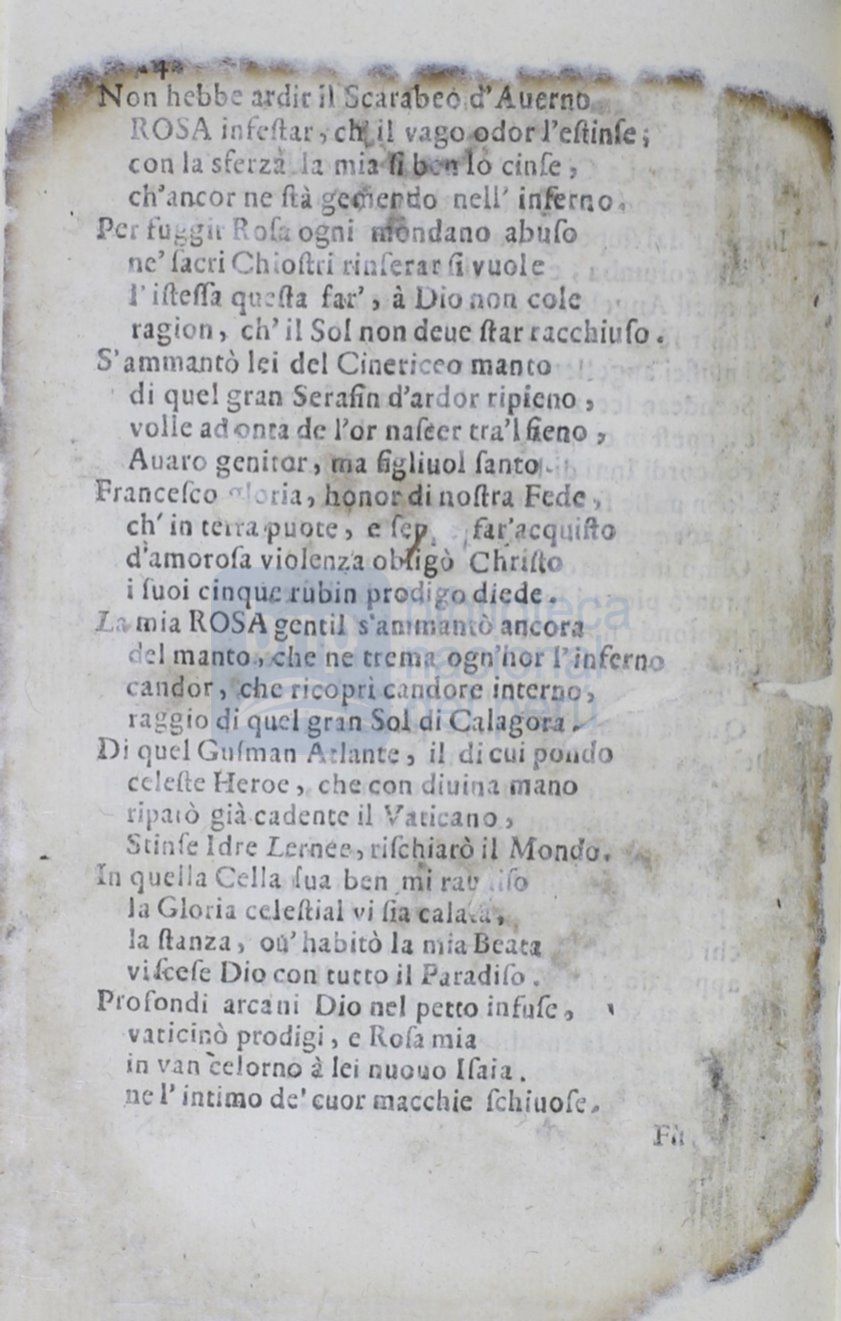 4
Non hebbe ardir il Scarabeo d'Auerno
ROSA infeſtar, ch' il vago odor l'eſtinſe;
con la sferza la mia ſi ben lo cinſe,
ch'ancor ne ſtà gemendo nell' inferno.
Per fuggir Roſa ogni mondano abuſo
ne' ſacri Chioſtri rinſerar ſi vuole
l' iſteſſa queſta far', à Dio non cole
ragion, ch' il Sol non deue ſtar racchiuſo.
S'ammantò lei del Cinericeo manto
di quel gran Serafin d'ardor ripieno,
volle ad onta de l'or naſcer tra'l fieno,
Auaro genitor, ma figliuol ſanto.
Franceſco gloria, honor di noſtra Fede,
ch' in terra puote, e ſep far'acquiſto
d'amoroſa violenza obligò Chriſto
i ſuoi cinque rubin prodigo diede.
La mia ROSA gentil s'ammantò ancora
del manto, che ne trema ogn'hor l'inferno
candor, che ricoprì candore interno,
raggio di quel gran Sol di Calagora.
Di quel Guſman Atlante, il di cui pondo
celeſte Heroe, che con diuina mano
riparò già cadente il Vaticano,
Stinſe Idre Lernee, riſchiarò il Mondo.
In quella Cella ſua ben mi rauiſo
la Gloria celeſtial vi ſia calata,
la ſtanza, ou' habitò la mia Beata
vi ſceſe Dio con tutto il Paradiſo.
Profondi arcani Dio nel petto infuſe,
vaticinò prodigi, e Roſa mia
in van celorno à lei nuouo Iſaia.
ne l' intimo de' cuor macchie ſchiuoſe.
Fù